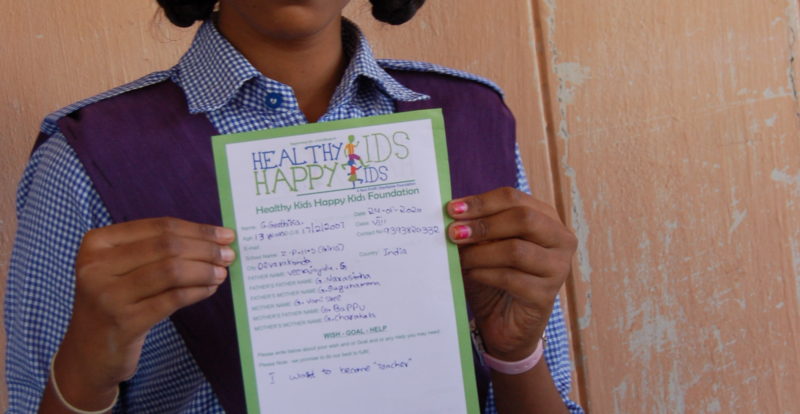 HEALTHY KIDS
HAPPY KIDS
Healthy Kids Happy Kids Foundation
Name: G.Geethika. Date: 24-01-2020
Age: 13 years D.O.B: 17/2/2007 Class: VIII
E-mail: Contact No: 9393820332
School Name: Z-P-H-S (Girls)
City: Devarakonda Country: India
FATHER NAME: Veeraiyulu.G
FATHER'S FATHER NAME: G. Narasimha
FATHER'S MOTHER NAME: G. Sugunamma
MOTHER NAME: G. Vani Sree
MOTHER'S FATHER NAME: G. Bappu
MOTHER'S MOTHER NAME: G. Chandrakala
WISH - GOAL - HELP
Please write below about your wish and or Goal and or any help you may need.
Please Note: we promise to do our best to fulfill.
I want to become "teacher"